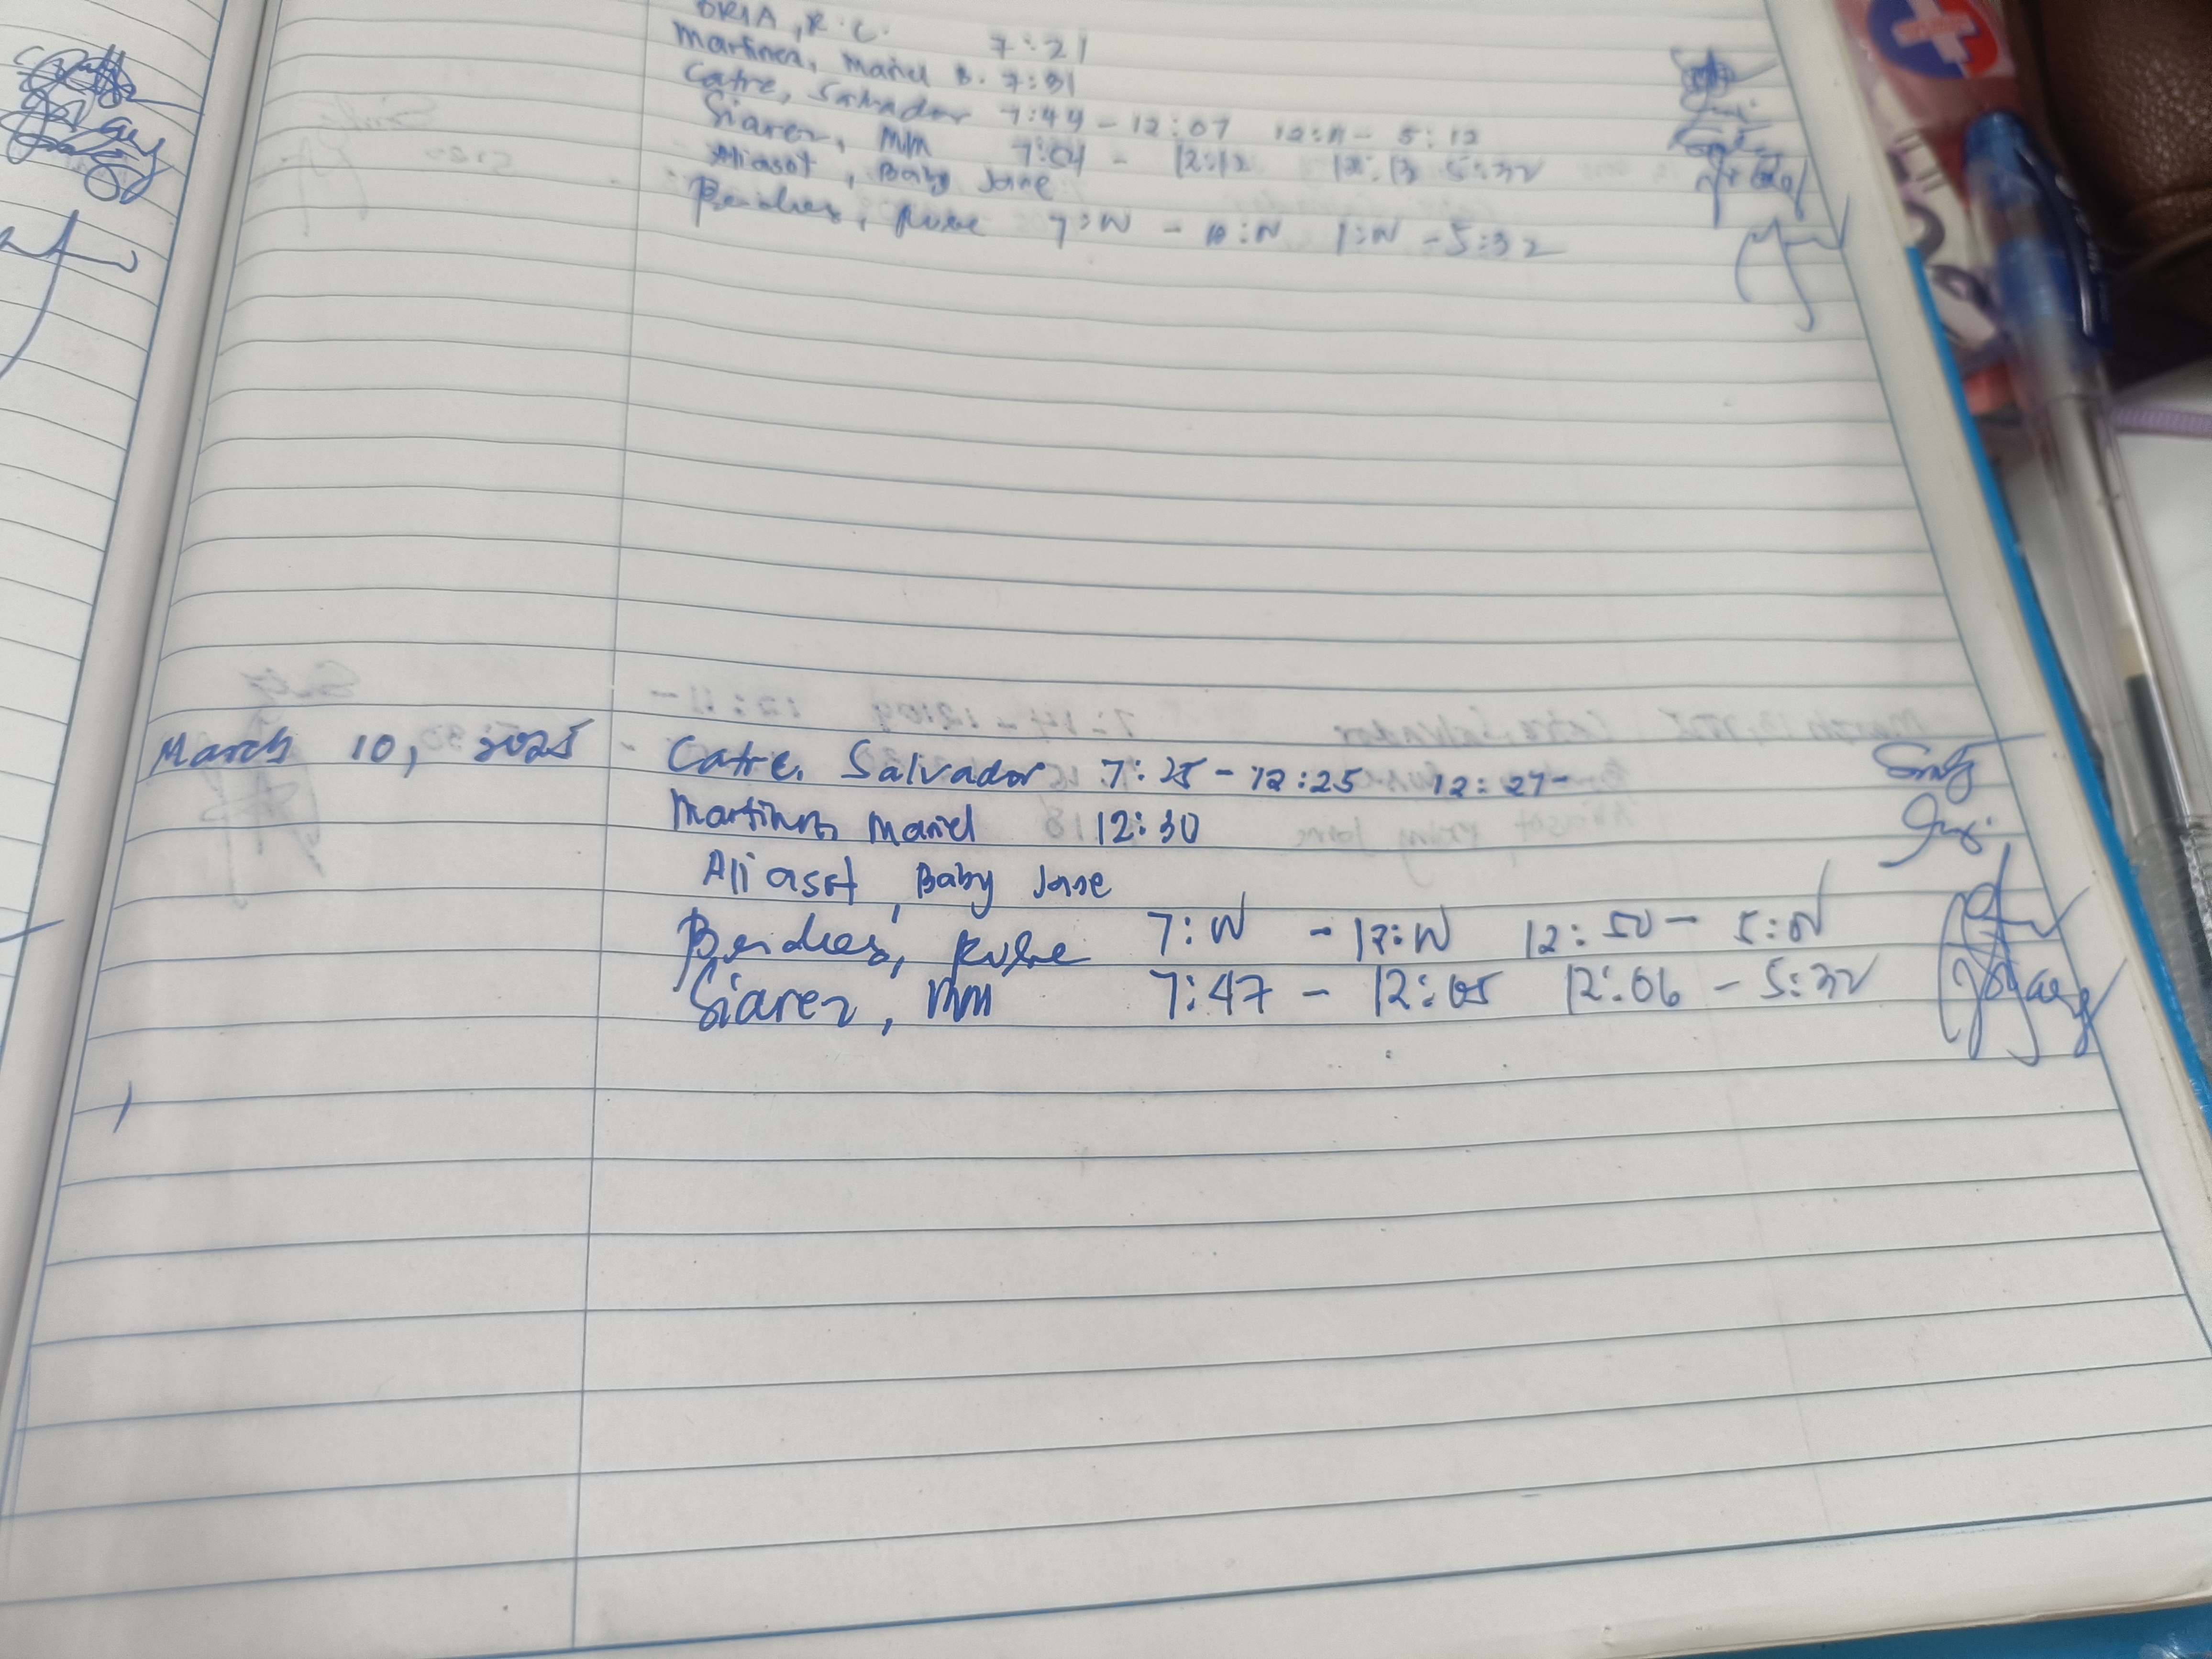 ORIA, R.C. 7:21
Martinez, Mariel B. 7:31
Catre, Salvador 7:44 - 12:07 12:11 - 5:12
Siarez, MM 7:04 - 12:12 12:13 5:32
Aliasot, Baby Jane
7:W - 5:32
March 10, 2025 - Catre, Salvador 7:25 - 12:25 12:27 -
Martinez, Mariel 12:30
Aliasot, Baby Jane
7:W - 12:W 12:50 - 5:W
Siarez, MM 7:47 - 12:05 12:06 - 5:32